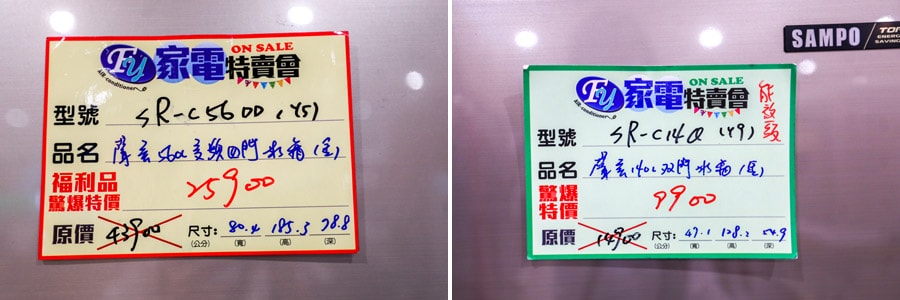 Fy 家電特賣會 ON SALE
Air conditioner
型號 SR-C560D(Y5)
品名 聲寶560L變頻四門冰箱(含)
福利品
驚爆特價 25900
原價 43900 尺寸: 80.4 185.3 78.8
(公分) (寬) (高) (深)
SAMPO
Fy 家電特賣會 ON SALE
Air conditioner
能效一級
型號 SR-C14Q(Y9)
品名 聲寶140L双門冰箱(含)
驚爆
特價 9900
原價 14900 尺寸: 47.1 128.2 54.9
(公分) (寬) (高) (深)